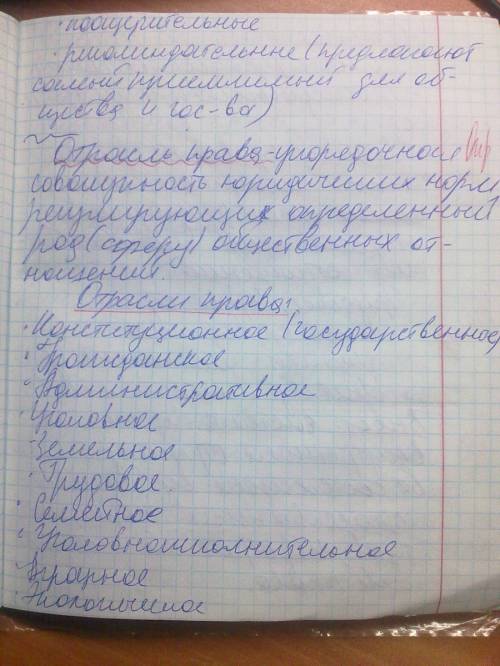 · поощрительные
· рекомендательные (предлагают
самый приемлимый для об-
щества и гос-ва)
Отрасль права - упорядочной
совокупность юридических норм
регулирующих определенный
род (сферу) общественных от-
ношений.
Отрасли права:
· Конституционное (государственное)
· Гражданское
· Административное
· Уголовное
· Земельное
· Трудовое
· Семейное
· Уголовноисполнительное
· Аграрное
· Экологичное